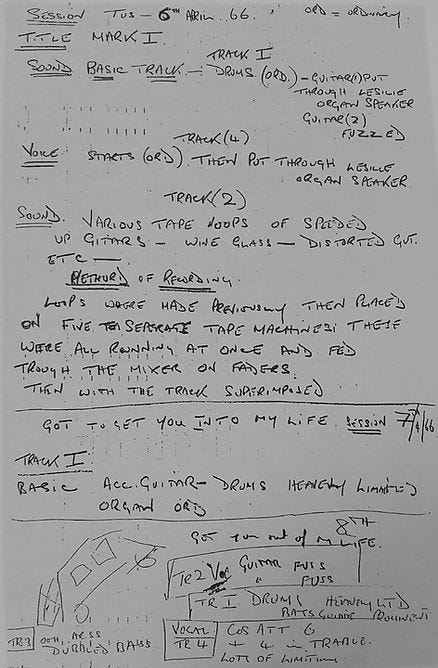 SESSION TUS - 6TH APRIL. 66. ORD = ORDINARY.
TITLE MARK I.
TRACK I
SOUND BASIC TRACK - DRUMS (ORD.) - GUITAR(1) PUT
THROUGH LESILIE
ORGAN SPEAKER
GUITAR(2)
FUZZED
TRACK(4)
VOICE STARTS (ORD). THEN PUT THROUGH LESILIE
ORGAN SPEAKER
TRACK(2)
SOUND. VARIOUS TAPE LOOPS OF SPEEDED
UP GITARS - WINE GLASS - DISTORTED GUT.
ETC -
METHORD OF RECORDING
LOOPS WHERE MADE PREVIOUSLY THEN PLACED
ON FIVE SEPERATE TAPE MACHINES: THESE
WERE ALL RUNNING AT ONCE AND FED
TROUGH THE MIXER ON FADERS.
THEN WITH THE TRACK SUPERIMPOSED
GOT TO GET YOU INTO MY LIFE. SESSION 7TH/4/66
TRACK I.
BASIC ACC. GUITAR - DRUMS HEAVENLY LIMITED
ORGAN ORD
8TH
GET YOU OUT OF M LIFE.
TR2 VOC GUITAR FUSS
" FUSS
TR I DRUMS HEAVENLY LTD
BASS GUIDE PROMINENT
TR3 DUBBLED BASS
VOCAL COS ATT 6
TR 4 + 4 TRABLE.
LOTS OF LIMITION